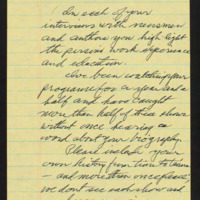 In each of your
interviews with newsmen
and authors you high light
the persons work experience
and education.
I've been watching your
programe for a year and a
half and have caught
more than half of these shows
without once hearing a
word about your biography.
Please include your
own history from time to time
— and more than once please,
we dont see each show and